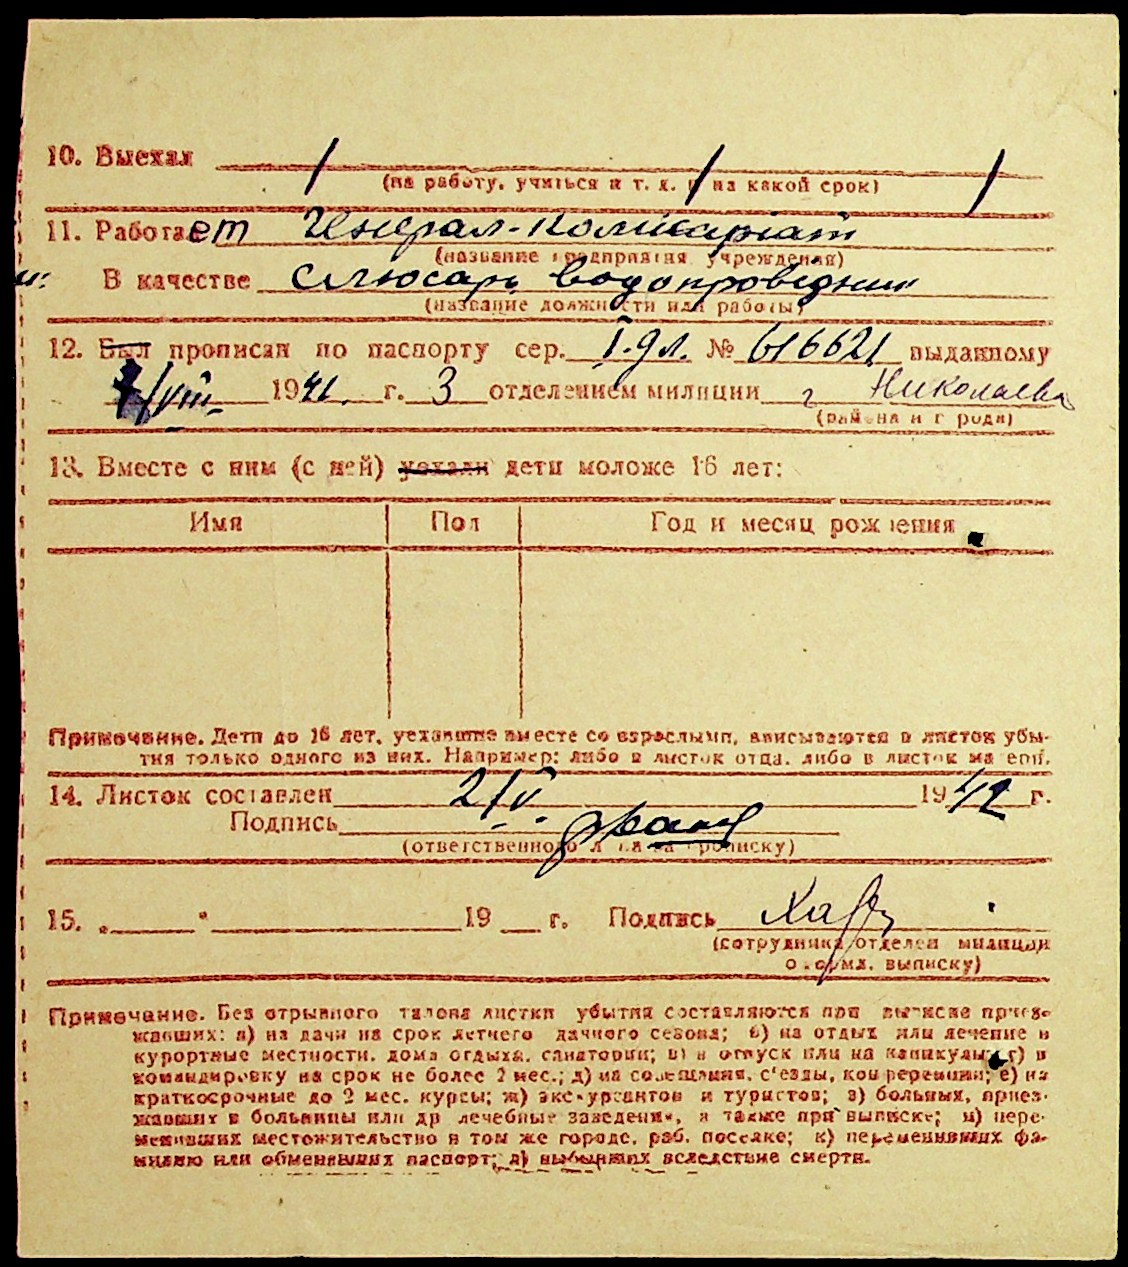 10. Выехал / / /
(на работу, учиться и т. д. и на какой срок)
11. Работает Генерал-комисариат
(название предприятия, учреждения)
В качестве слюсарь водопроводник
(название должности или работы)
12. Был прописан по паспорту сер. І-дл. № 616621 выданному
/VIII 1941 г. 3 отделением милиции г Николаева
(района и города)
13. Вместе с ним (с ней) уехали дети моложе 16 лет:
Имя Пол Год и месяц рождения
Примечание. Дети до 16 лет, уехавшие вместе со взрослыми, вписываются в листок убы-
тия только одного из них. Например: либо в листок отца, либо в листок матери.
14. Листок составлен 2/V 1942 г.
Подпись
(ответственного лица за прописку)
15. „ “ 19 г. Подпись
(сотрудника отделен милиции
оформл. выписку)
Примечание. Без отрывного талона листки убытия составляются при выписке приез-
жавших: а) на дачи на срок летнего дачного сезона; б) на отдых или лечение в
курортные местности, дома отдыха, санатории; в) в отпуск или на каникулы; г) в
командировку на срок не более 2 мес.; д) на совещания, с'езды, конференции; е) на
краткосрочные до 2 мес. курсы; ж) экскурсантов и туристов; з) больных, приез-
жавших в больницы или др лечебные заведения, а также при выписке; и) пере-
менивших местожительство в том же городе, раб. поселке; к) переменивших фа-
милию или обменявших паспорт; л) выбывших вследствие смерти.